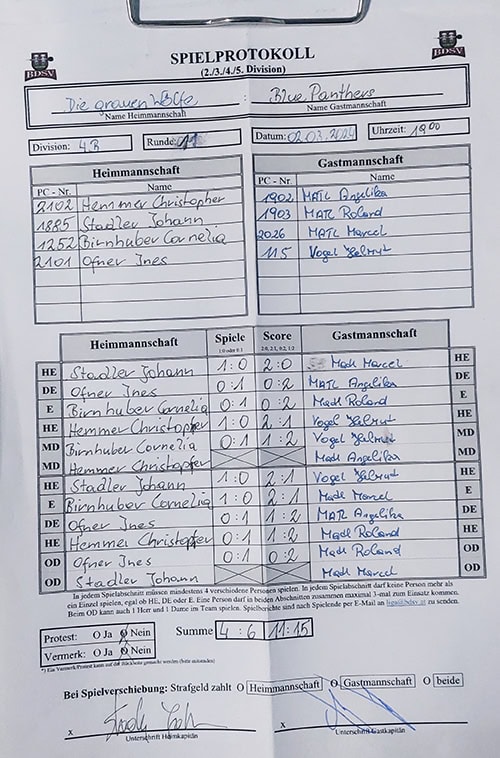 BDSV
SPIELPROTOKOLL
BDSV
(2./3./4./5. Division)
Die grauen Wölfe : Blue Panthers
Name Heimmannschaft Name Gastmannschaft
Division: 4.B Runde: 11 Datum: 02.03.2024 Uhrzeit: 19 00
Heimmannschaft Gastmannschaft
PC - Nr. Name PC - Nr. Name
2102 Hemmer Christopher 1902 MATL Angelika
1885 Stadler Johann 1903 MATL Roland
1252 Birnhuber Cornelia 2026 MATL Marcel
2101 Ofner Ines 115 Vogel Helmut
Heimmannschaft Spiele Score Gastmannschaft
1:0 oder 0:1 2:0, 2:1, 0:2, 1:2
HE Stadler Johann 1:0 2:0 Madl Marcel HE
DE Ofner Ines 0:1 0:2 MATL Angelika DE
E Birnhuber Cornelia 0:1 0:2 Madl Roland E
HE Hemmer Christopher 1:0 2:1 Vogel Helmut HE
MD Birnhuber Cornelia 0:1 1:2 Vogel Helmut MD
MD Hemmer Christopher Madl Angelika MD
HE Stadler Johann 1:0 2:1 Vogel Helmut HE
E Birnhuber Cornelia 1:0 2:1 Madl Marcel E
DE Ofner Ines 0:1 1:2 MATL Angelika DE
HE Hemmer Christopher 0:1 1:2 Madl Roland HE
OD Ofner Ines 0:1 0:2 Madl Roland OD
OD Stadler Johann Madl Marcel OD
In jedem Spielabschnitt müssen mindestens 4 verschiedene Personen spielen. In jedem Spielabschnitt darf keine Person mehr als
ein Einzel spielen, egal ob HE, DE oder E. Eine Person darf in beiden Abschnitten zusammen maximal 3-mal zum Einsatz kommen.
Beim OD kann auch 1 Herr und 1 Dame im Team spielen. Spielberichte sind nach Spielende per E-Mail an liga@bdsv.at zu senden.
Protest: O Ja O Nein Summe 4 : 6 11:15
Vermerk: O Ja O Nein
*) Ein Vermerk/Protest kann auf der Rückseite gemacht werden (bitte ankreuzen)
Bei Spielverschiebung: Strafgeld zahlt O Heimmannschaft O Gastmannschaft O beide
x x
Unterschrift Heimkapitän Unterschrift Gastkapitän